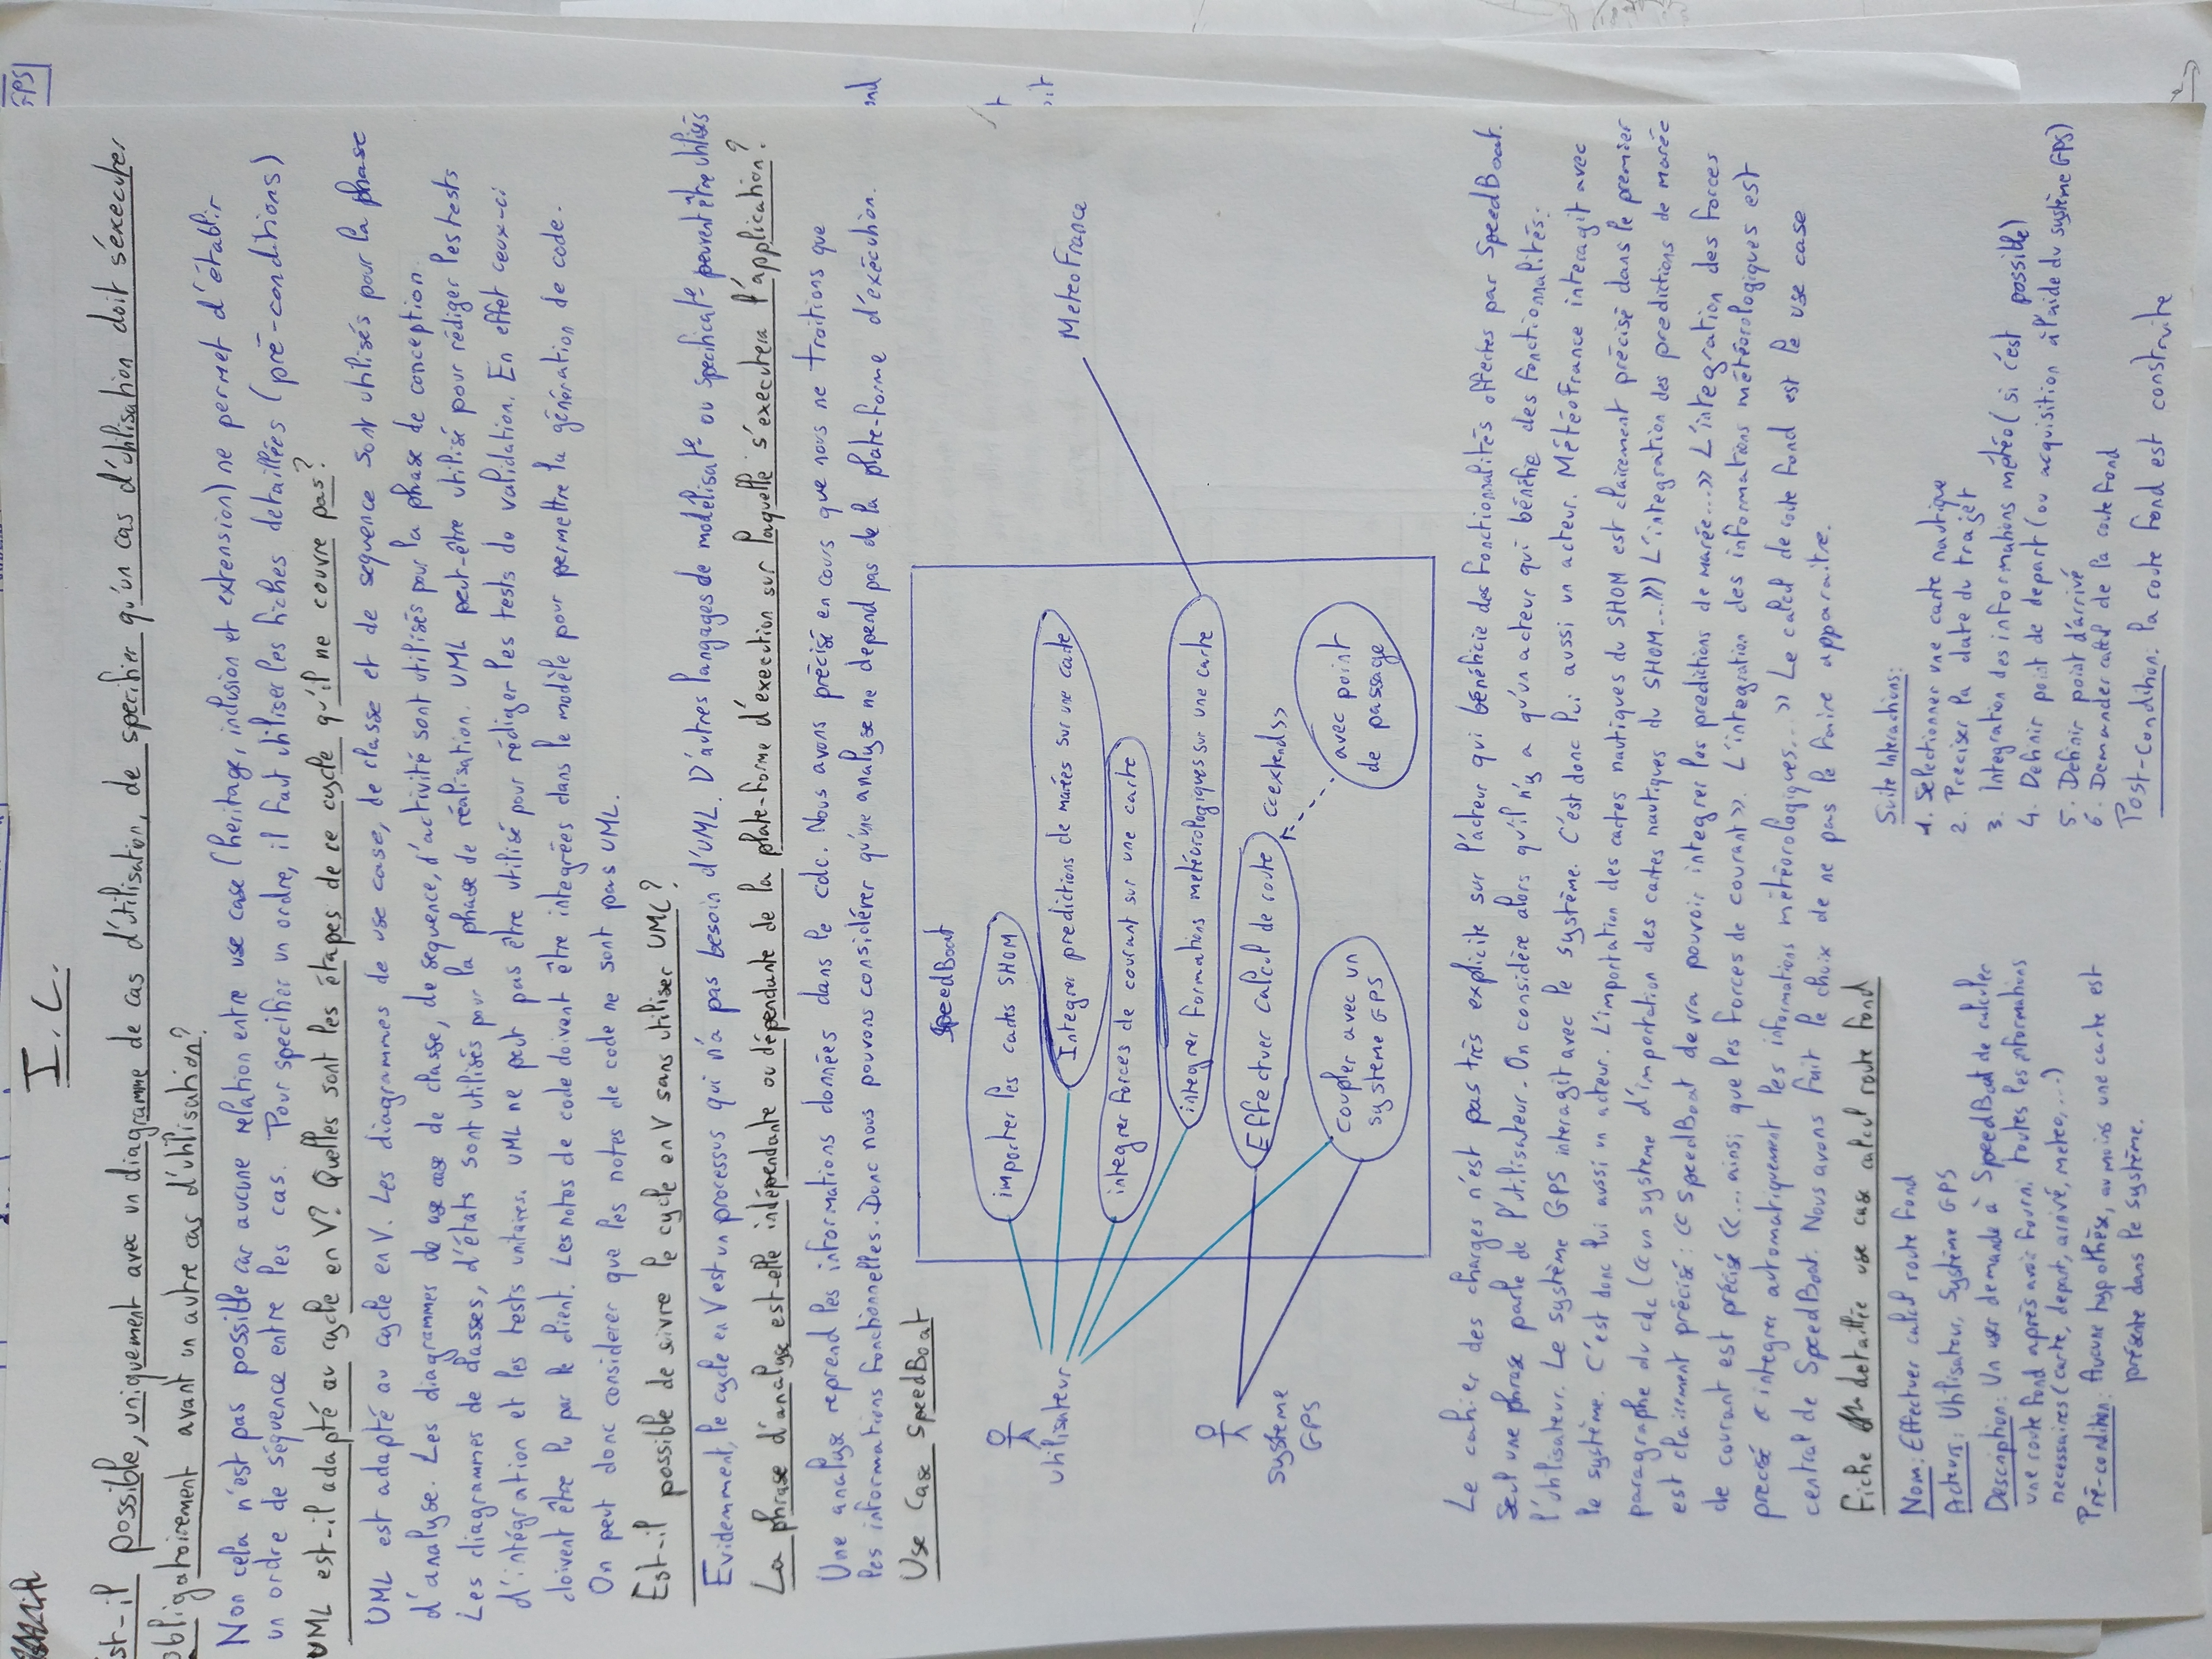 I.C.
Est-il possible, uniquement avec un diagramme de cas d'utilisation, de specifier qu'un cas d'utilisation doit s'éxecuter
obligatoirement avant un autre cas d'utilisation?
Non cela n'est pas possible car aucune relation entre use case (heritage, inclusion et extension) ne permet d'établir
un ordre de séquence entre les cas. Pour specifier un ordre, il faut utiliser les fiches detaillées (pré-conditions)
UML est-il adapté au cycle en V? Quelles sont les étapes de ce cycle qu'il ne couvre pas?
UML est adapté au cycle en V. Les diagrammes de use case, de classe et de sequence sont utilisés pour la phase
d'analyse. Les diagrammes de use case de classe, de sequence, d'activité sont utilisés pour la phase de conception.
Les diagrammes de classes, d'états sont utilisés pour la phase de réalisation. UML peut-être utilisé pour rédiger les tests
d'intégration et les tests unitaires. UML ne peut pas être utilisé pour rédiger les tests de validation. En effet ceux-ci
doivent être lu par le client. Les notes de code doivent être integrées dans le modèle pour permettre la génération de code.
On peut donc considerer que les notes de code ne sont pas UML.
Est-il possible de suivre le cycle en V sans utiliser UML?
Evidemment, le cycle en V est un processus qui n'a pas besoin d'UML. D'autres langages de modélisat° ou specificat° peuvent être utilisés
La phrase d'analyse est-elle indépendante ou dépendante de la plate-forme d'execution sur laquelle s'executera l'application?
Une analyse reprend les informations données dans le cdc. Nous avons précisé en cours que nous ne traitions que
les informations fonctionnelles. Donc nous pouvons considérer qu'une analyse ne depend pas de la plate-forme d'exécution.
Use Case SpeedBoat
SpeedBoat
importer les cartes SHOM
Integrer predictions de marées sur une carte
integrer forces de courant sur une carte
integrer formations météorologiques sur une carte
Effectuer calcul de route
<<extends>>
avec point
de passage
Coupler avec un
système GPS
Utilisateur
Système
GPS
MeteoFrance
Le cahier des charges n'est pas très explicite sur l'acteur qui bénéficie des fonctionnalités offertes par SpeedBoat.
Seul une phrase parle de l'utilisateur. On considère alors qu'il n'y a qu'un acteur qui bénéfie des fonctionnalités:
l'utilisateur. Le système GPS interagit avec le système. C'est donc lui aussi un acteur. MétéoFrance interagit avec
le système. C'est donc lui aussi un acteur. L'importation des cartes nautiques du SHOM est clairement précisé dans le premier
paragraphe du cdc (<<un systeme d'importation des cartes nautiques du SHOM...>>) L'intégration des predictions de marée
est clairement précisé: << SpeedBoat devra pouvoir integrer les preditions de marée...>> L'integration des forces
de courant est précisé <<...ainsi que les forces de courant>>. L'integration des informations météorologiques est
precisé << integrer automatiquement les informations météorologiques...>> Le calcul de route fond est le use case
central de SpeedBoat. Nous avons fait le choix de ne pas le faire apparaitre.
Fiche detaillée use case calcul route fond
Nom: Effectuer calcul route fond
Acteurs: Utilisateur, Système GPS
Description: Un user demande à SpeedBoat de calculer
une route fond après avoir fourni toutes les informations
necessaires (carte, depart, arrivé, meteo,...)
Pré-condition: Aucune hypothèse, au moins une carte est
présente dans le système.
Suite Interactions:
1. Selectionner une carte nautique
2. Preciser la date du trajet
3. Integration des informations météo (si c'est possible)
4. Definir point de depart (ou acquisition à l'aide du système GPS)
5. Definir point d'arrivé
6. Demander calcul de la route fond
Post-Condition: la route fond est construite
GPS